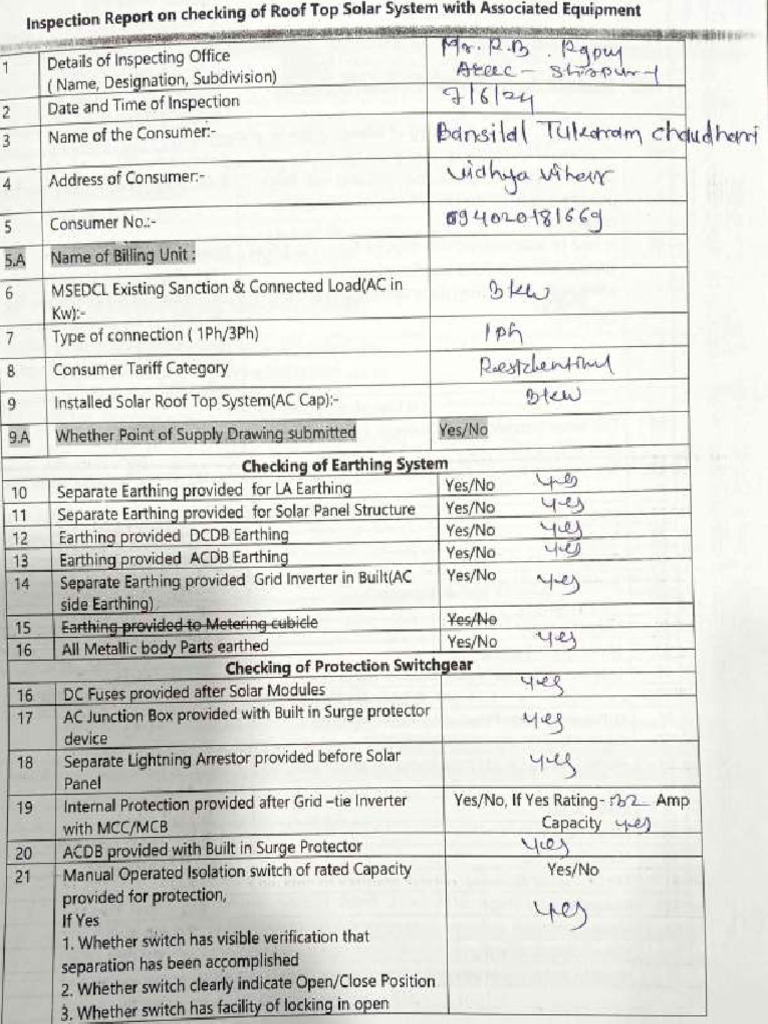 Inspection Report on checking of Roof Top Solar System with Associated Equipment
1 Details of Inspecting Office Mr. R.B.
( Name, Designation, Subdivision)
2 Date and Time of Inspection 7/6/24
3 Name of the Consumer:- Bansilal Tukaram chaudhari
4 Address of Consumer:- vidhya vihar
5 Consumer No.:- 094020181669
5.A Name of Billing Unit :
6 MSEDCL Existing Sanction & Connected Load(AC in 3kw
Kw):-
7 Type of connection ( 1Ph/3Ph) 1ph
8 Consumer Tariff Category
9 Installed Solar Roof Top System(AC Cap):- 3kw
9.A Whether Point of Supply Drawing submitted Yes/No
Checking of Earthing System
10 Separate Earthing provided for LA Earthing Yes/No yes
11 Separate Earthing provided for Solar Panel Structure Yes/No yes
12 Earthing provided DCDB Earthing Yes/No yes
13 Earthing provided ACDB Earthing Yes/No yes
14 Separate Earthing provided Grid Inverter in Built(AC Yes/No yes
side Earthing)
15 Earthing provided to Metering cubicle Yes/No
16 All Metallic body Parts earthed Yes/No yes
Checking of Protection Switchgear
16 DC Fuses provided after Solar Modules yes
17 AC Junction Box provided with Built in Surge protector yes
device
18 Separate Lightning Arrestor provided before Solar yes
Panel
19 Internal Protection provided after Grid –tie Inverter Yes/No, If Yes Rating- 32 Amp
with MCC/MCB Capacity yes
20 ACDB provided with Built in Surge Protector yes
21 Manual Operated Isolation switch of rated Capacity Yes/No
provided for protection, yes
If Yes
1. Whether switch has visible verification that
separation has been accomplished
2. Whether switch clearly indicate Open/Close Position
3. Whether switch has facility of locking in open